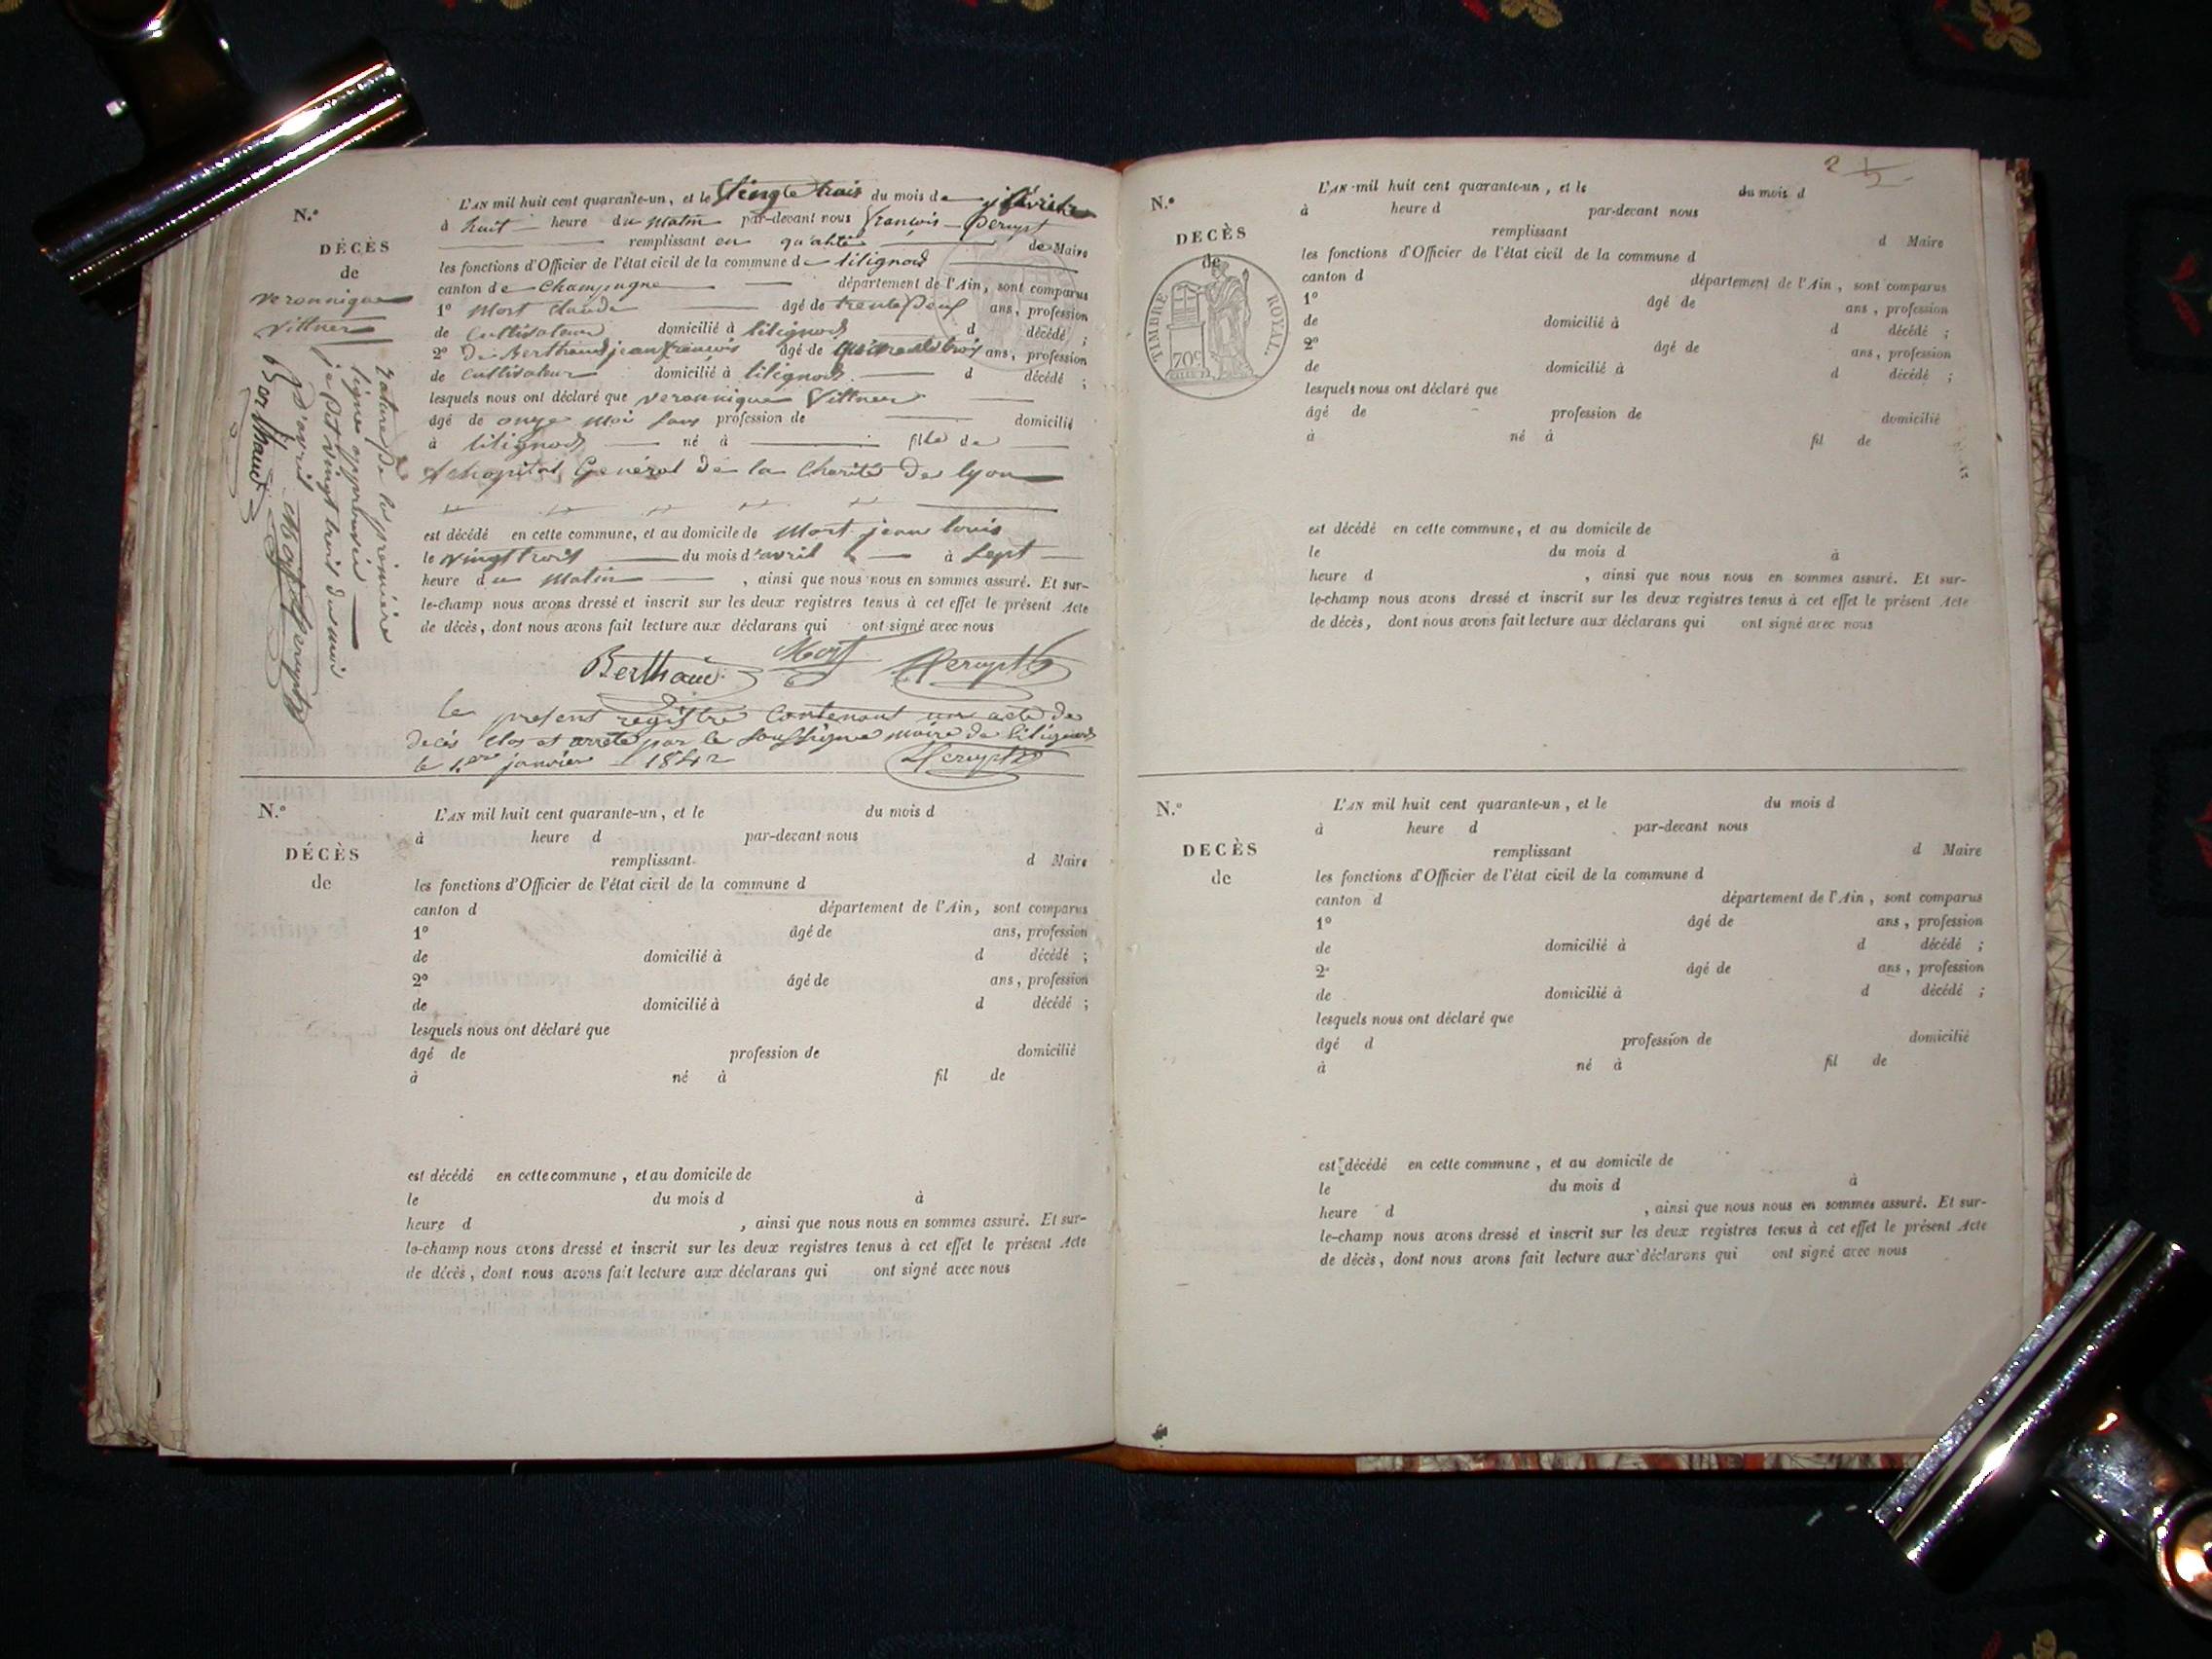 N.º
DÉCÈS
de
veronnique
Vittner
rature de la première
ligne approuvée
je dit vingt trois du mois
d'avril
Berthaud Mort Perupt
L'AN mil huit cent quarante-un, et le Vingt trois du mois de
à huit heure du matin par-devant nous françois Perupt
remplissant en qualité de Maire
les fonctions d'Officier de l'état civil de la commune de lilignod
canton de Champagne département de l'Ain, sont comparus
1º Mort Claude âgé de trente ans, profession
de Cultivateur domicilié à lilignod d décédé ;
2º De Berthaud jean françois âgé de ans, profession
de Cultivateur domicilié à lilignod d décédé ;
lesquels nous ont déclaré que veronnique Vittner
âgé de onze moi sans profession de domicilié
à lilignod né à fille de
l'hopital Général de la Charité de lyon
est décédé en cette commune, et au domicile de Mort jean louis
le vingt trois du mois d'avril à Sept
heure du matin , ainsi que nous nous en sommes assuré. Et sur-
le-champ nous avons dressé et inscrit sur les deux registres tenus à cet effet le présent Acte
de décès, dont nous avons fait lecture aux déclarans qui ont signé avec nous
Berthaud Mort Perupt
le présent registre Contenant un acte de
décés clos et arreté par le soussigné maire de lilignod
le 1er janvier 1842 Perupt
N.º
DÉCÈS
de
L'AN mil huit cent quarante-un, et le du mois d
à heure d par-devant nous
remplissant d Maire
les fonctions d'Officier de l'état civil de la commune d
canton d département de l'Ain, sont comparus
1º âgé de ans, profession
de domicilié à d décédé ;
2º âgé de ans, profession
de domicilié à d décédé ;
lesquels nous ont déclaré que
âgé de profession de domicilié
à né à fil de
est décédé en cette commune, et au domicile de
le du mois d à
heure d , ainsi que nous nous en sommes assuré. Et sur-
le-champ nous avons dressé et inscrit sur les deux registres tenus à cet effet le présent Acte
de décès, dont nous avons fait lecture aux déclarans qui ont signé avec nous
N.º
DECÈS
de
TIMBRE ROYAL.
70c
L'AN mil huit cent quarante-un, et le du mois d
à heure d par-devant nous
remplissant d Maire
les fonctions d'Officier de l'état civil de la commune d
canton d département de l'Ain, sont comparus
1º âgé de ans, profession
de domicilié à d décédé ;
2º âgé de ans, profession
de domicilié à d décédé ;
lesquels nous ont déclaré que
âgé de profession de domicilié
à né à fil de
est décédé en cette commune, et au domicile de
le du mois d à
heure d , ainsi que nous nous en sommes assuré. Et sur-
le-champ nous avons dressé et inscrit sur les deux registres tenus à cet effet le présent Acte
de décès, dont nous avons fait lecture aux déclarans qui ont signé avec nous
N.º
DECÈS
de
L'AN mil huit cent quarante-un, et le du mois d
à heure d par-devant nous
remplissant d Maire
les fonctions d'Officier de l'état civil de la commune d
canton d département de l'Ain, sont comparus
1º âgé de ans, profession
de domicilié à d décédé ;
2º âgé de ans, profession
de domicilié à d décédé ;
lesquels nous ont déclaré que
âgé d profession de domicilié
à né à fil de
est décédé en cette commune, et au domicile de
le du mois d à
heure d , ainsi que nous nous en sommes assuré. Et sur-
le-champ nous avons dressé et inscrit sur les deux registres tenus à cet effet le présent Acte
de décès, dont nous avons fait lecture aux déclarans qui ont signé avec nous